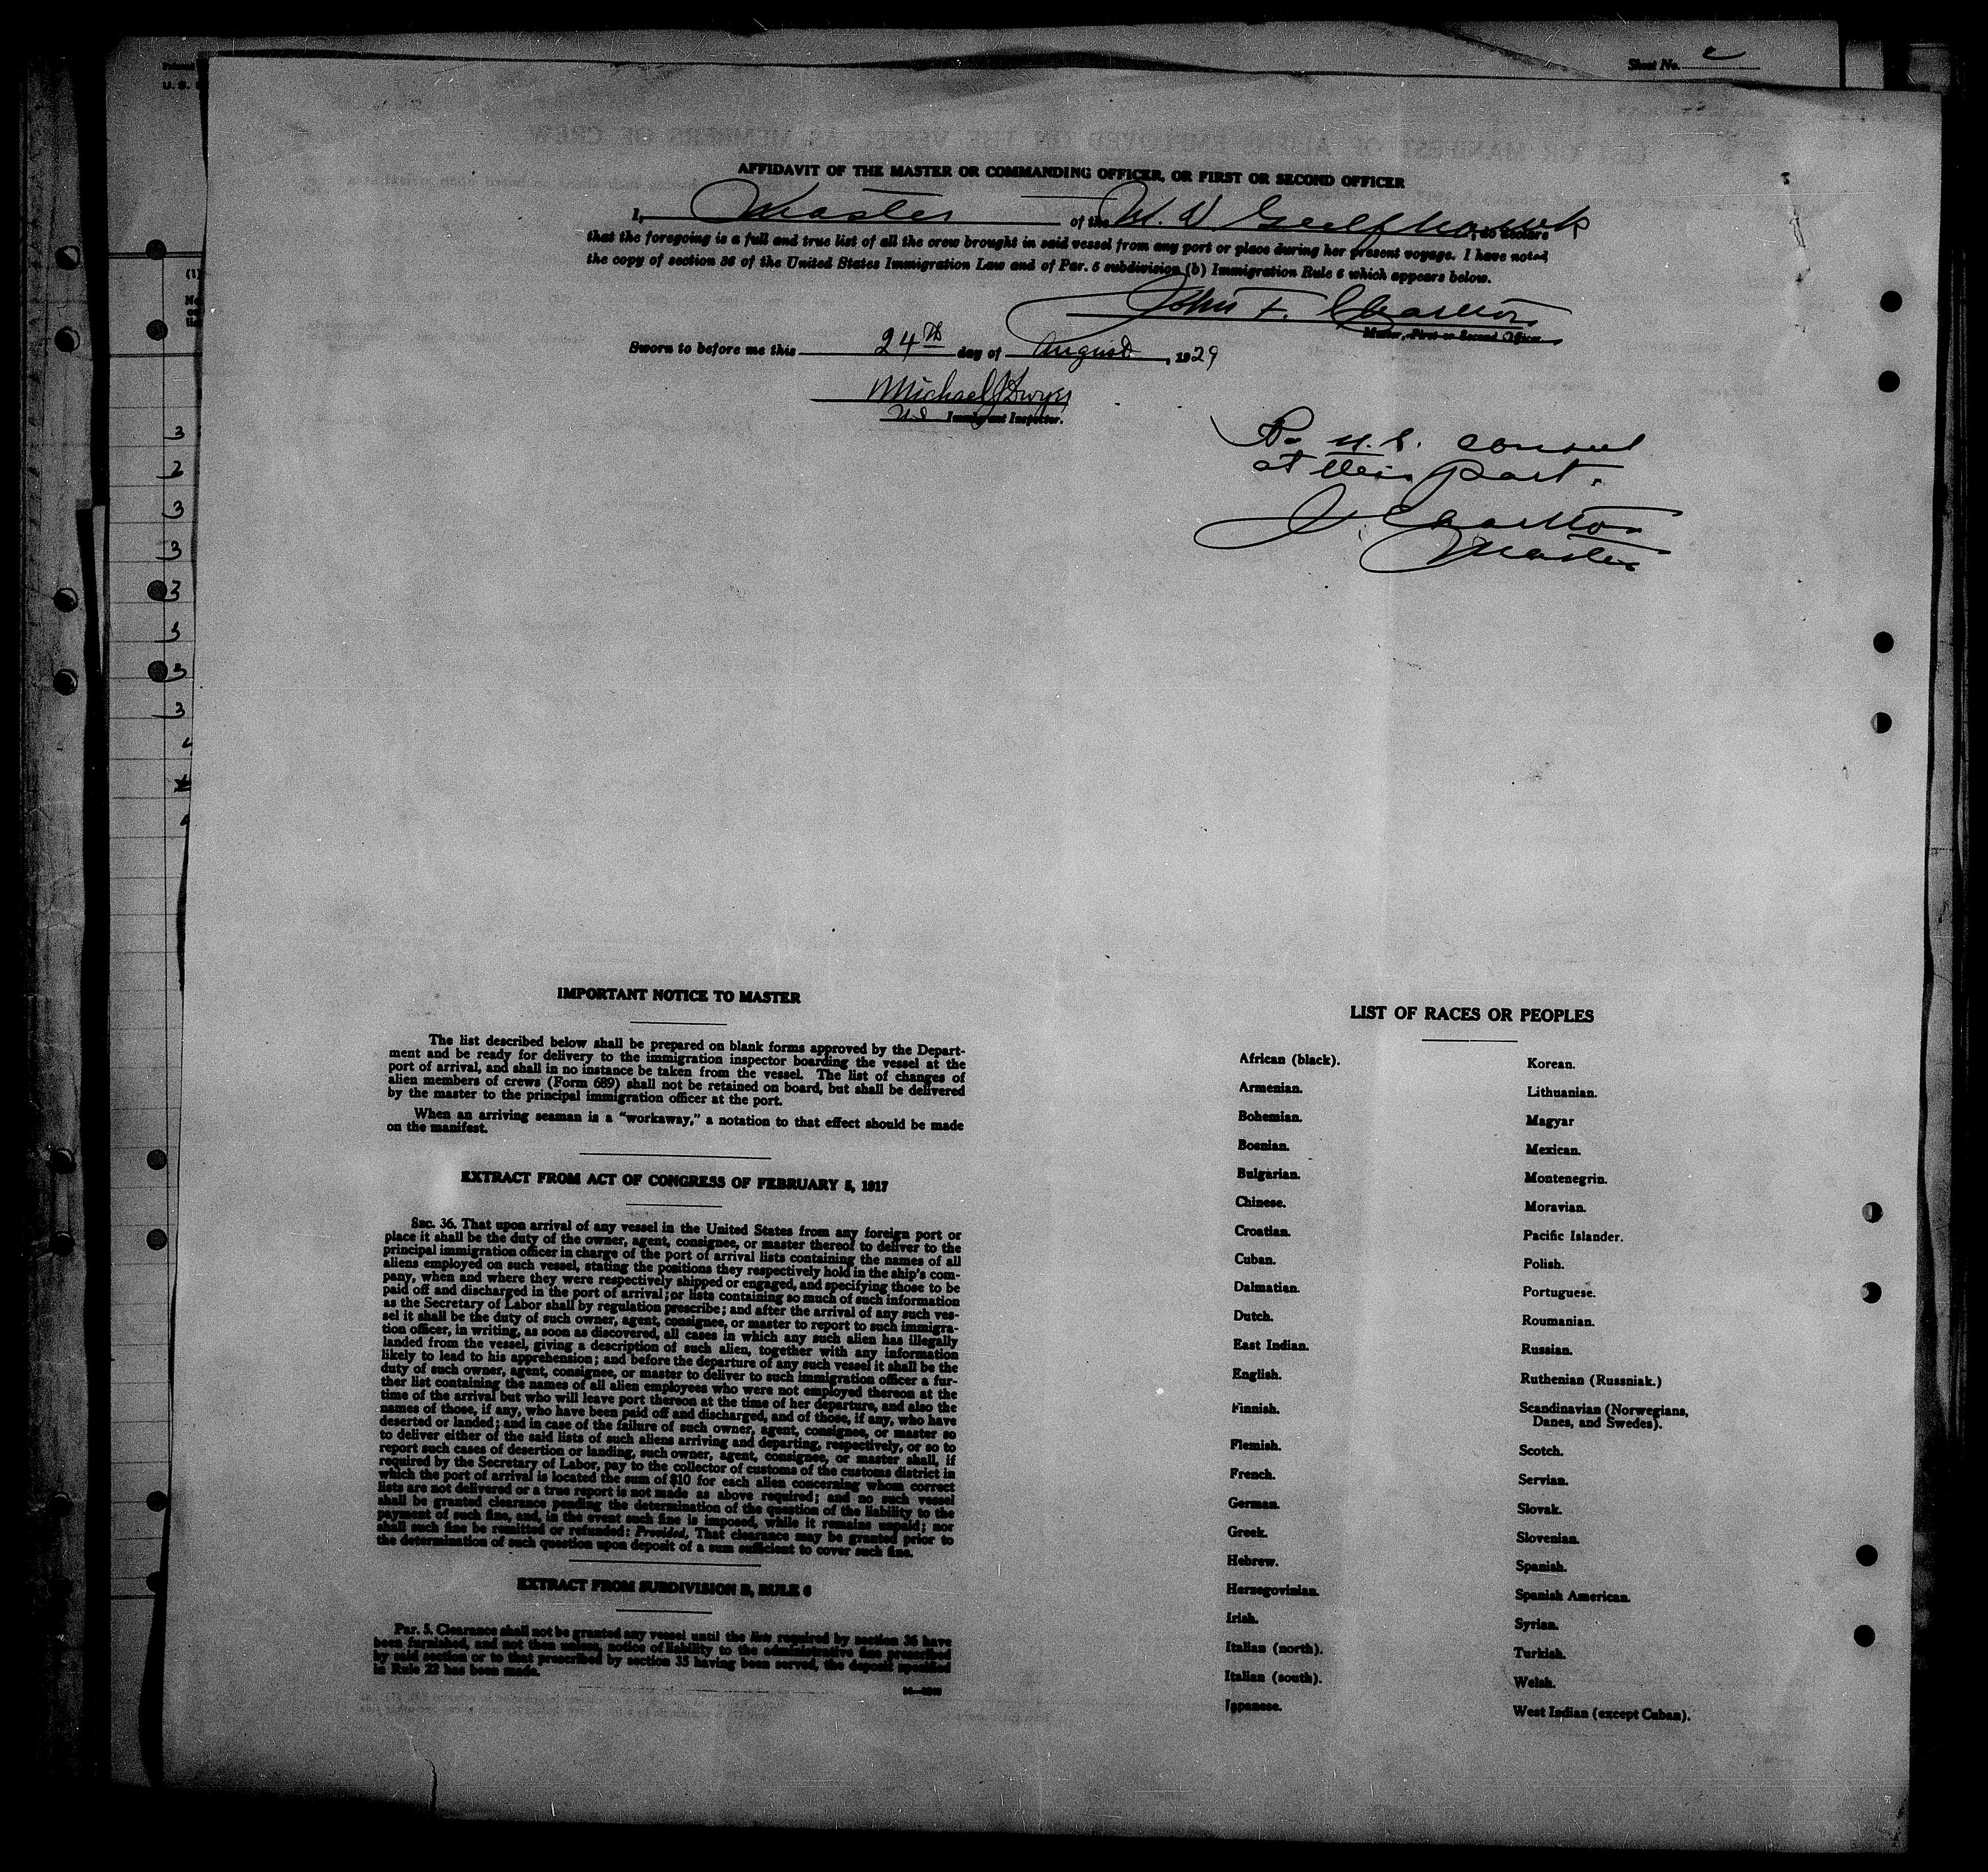 Printed
U. S.
Sheet No. 2
AFFIDAVIT OF THE MASTER OR COMMANDING OFFICER, OR FIRST OR SECOND OFFICER
I, Master of the M. V. Gulfhawk, do declare
that the foregoing is a full and true list of all the crew brought in said vessel from any port or place during her present voyage. I have noted
the copy of section 36 of the United States Immigration Law and of Par. 5 subdivision (b) Immigration Rule 6 which appears below.
John F. Charlton
Master, First or Second Officer
Sworn to before me this 24th day of August, 1929
Michael J Dwyer
US Immigrant Inspector.
No U.S. consul
at this port.
J Charlton
Master
(1)
3
2
3
3
3
3
3
3
IMPORTANT NOTICE TO MASTER
The list described below shall be prepared on blank forms approved by the Depart-
ment and be ready for delivery to the immigration inspector boarding the vessel at the
port of arrival, and shall in no instance be taken from the vessel. The list of changes of
alien members of crews (Form 689) shall not be retained on board, but shall be delivered
by the master to the principal immigration officer at the port.
When an arriving seaman is a “workaway,” a notation to that effect should be made
on the manifest.
EXTRACT FROM ACT OF CONGRESS OF FEBRUARY 5, 1917
SEC. 36. That upon arrival of any vessel in the United States from any foreign port or
place it shall be the duty of the owner, agent, consignee, or master thereof to deliver to the
principal immigration officer in charge of the port of arrival lists containing the names of all
aliens employed on such vessel, stating the positions they respectively hold in the ship's com-
pany, when and where they were respectively shipped or engaged, and specifying those to be
paid off and discharged in the port of arrival; or lists containing so much of such information
as the Secretary of Labor shall by regulation prescribe; and after the arrival of any such ves-
sel it shall be the duty of such owner, agent, consignee, or master to report to such immigra-
tion officer, in writing, as soon as discovered, all cases in which any such alien has illegally
landed from the vessel, giving a description of such alien, together with any information
likely to lead to his apprehension; and before the departure of any such vessel it shall be the
duty of such owner, agent, consignee, or master to deliver to such immigration officer a fur-
ther list containing the names of all alien employees who were not employed thereon at the
time of the arrival but who will leave port thereon at the time of her departure, and also the
names of those, if any, who have been paid off and discharged, and of those, if any, who have
deserted or landed; and in case of the failure of such owner, agent, consignee, or master so
to deliver either of the said lists of such aliens arriving and departing, respectively, or so to
report such cases of desertion or landing, such owner, agent, consignee, or master shall, if
required by the Secretary of Labor, pay to the collector of customs of the customs district in
which the port of arrival is located the sum of $10 for each alien concerning whom correct
lists are not delivered or a true report is not made as above required; and no such vessel
shall be granted clearance pending the determination of the question of the liability to the
payment of such fine, and, in the event such fine is imposed, while it remains unpaid; nor
shall such fine be remitted or refunded: Provided, That clearance may be granted prior to
the determination of such question upon deposit of a sum sufficient to cover such fine.
EXTRACT FROM SUBDIVISION B, RULE 6
Par. 5. Clearance shall not be granted any vessel until the lists required by section 36 have
been furnished, and not then unless, notice of liability to the administrative fine prescribed
by said section or to that prescribed by section 35 having been served, the deposit specified
in Rule 22 has been made.
LIST OF RACES OR PEOPLES
African (black).
Armenian.
Bohemian.
Bosnian.
Bulgarian.
Chinese.
Croatian.
Cuban.
Dalmatian.
Dutch.
East Indian.
English.
Finnish.
Flemish.
French.
German.
Greek.
Hebrew.
Herzegovinian.
Irish.
Italian (north).
Italian (south).
Japanese.
Korean.
Lithuanian.
Magyar
Mexican.
Montenegrin.
Moravian.
Pacific Islander.
Polish.
Portuguese.
Roumanian.
Russian.
Ruthenian (Russniak.)
Scandinavian (Norwegians,
Danes, and Swedes).
Scotch.
Servian.
Slovak.
Slovenian.
Spanish.
Spanish American.
Syrian.
Turkish.
Welsh.
West Indian (except Cuban).